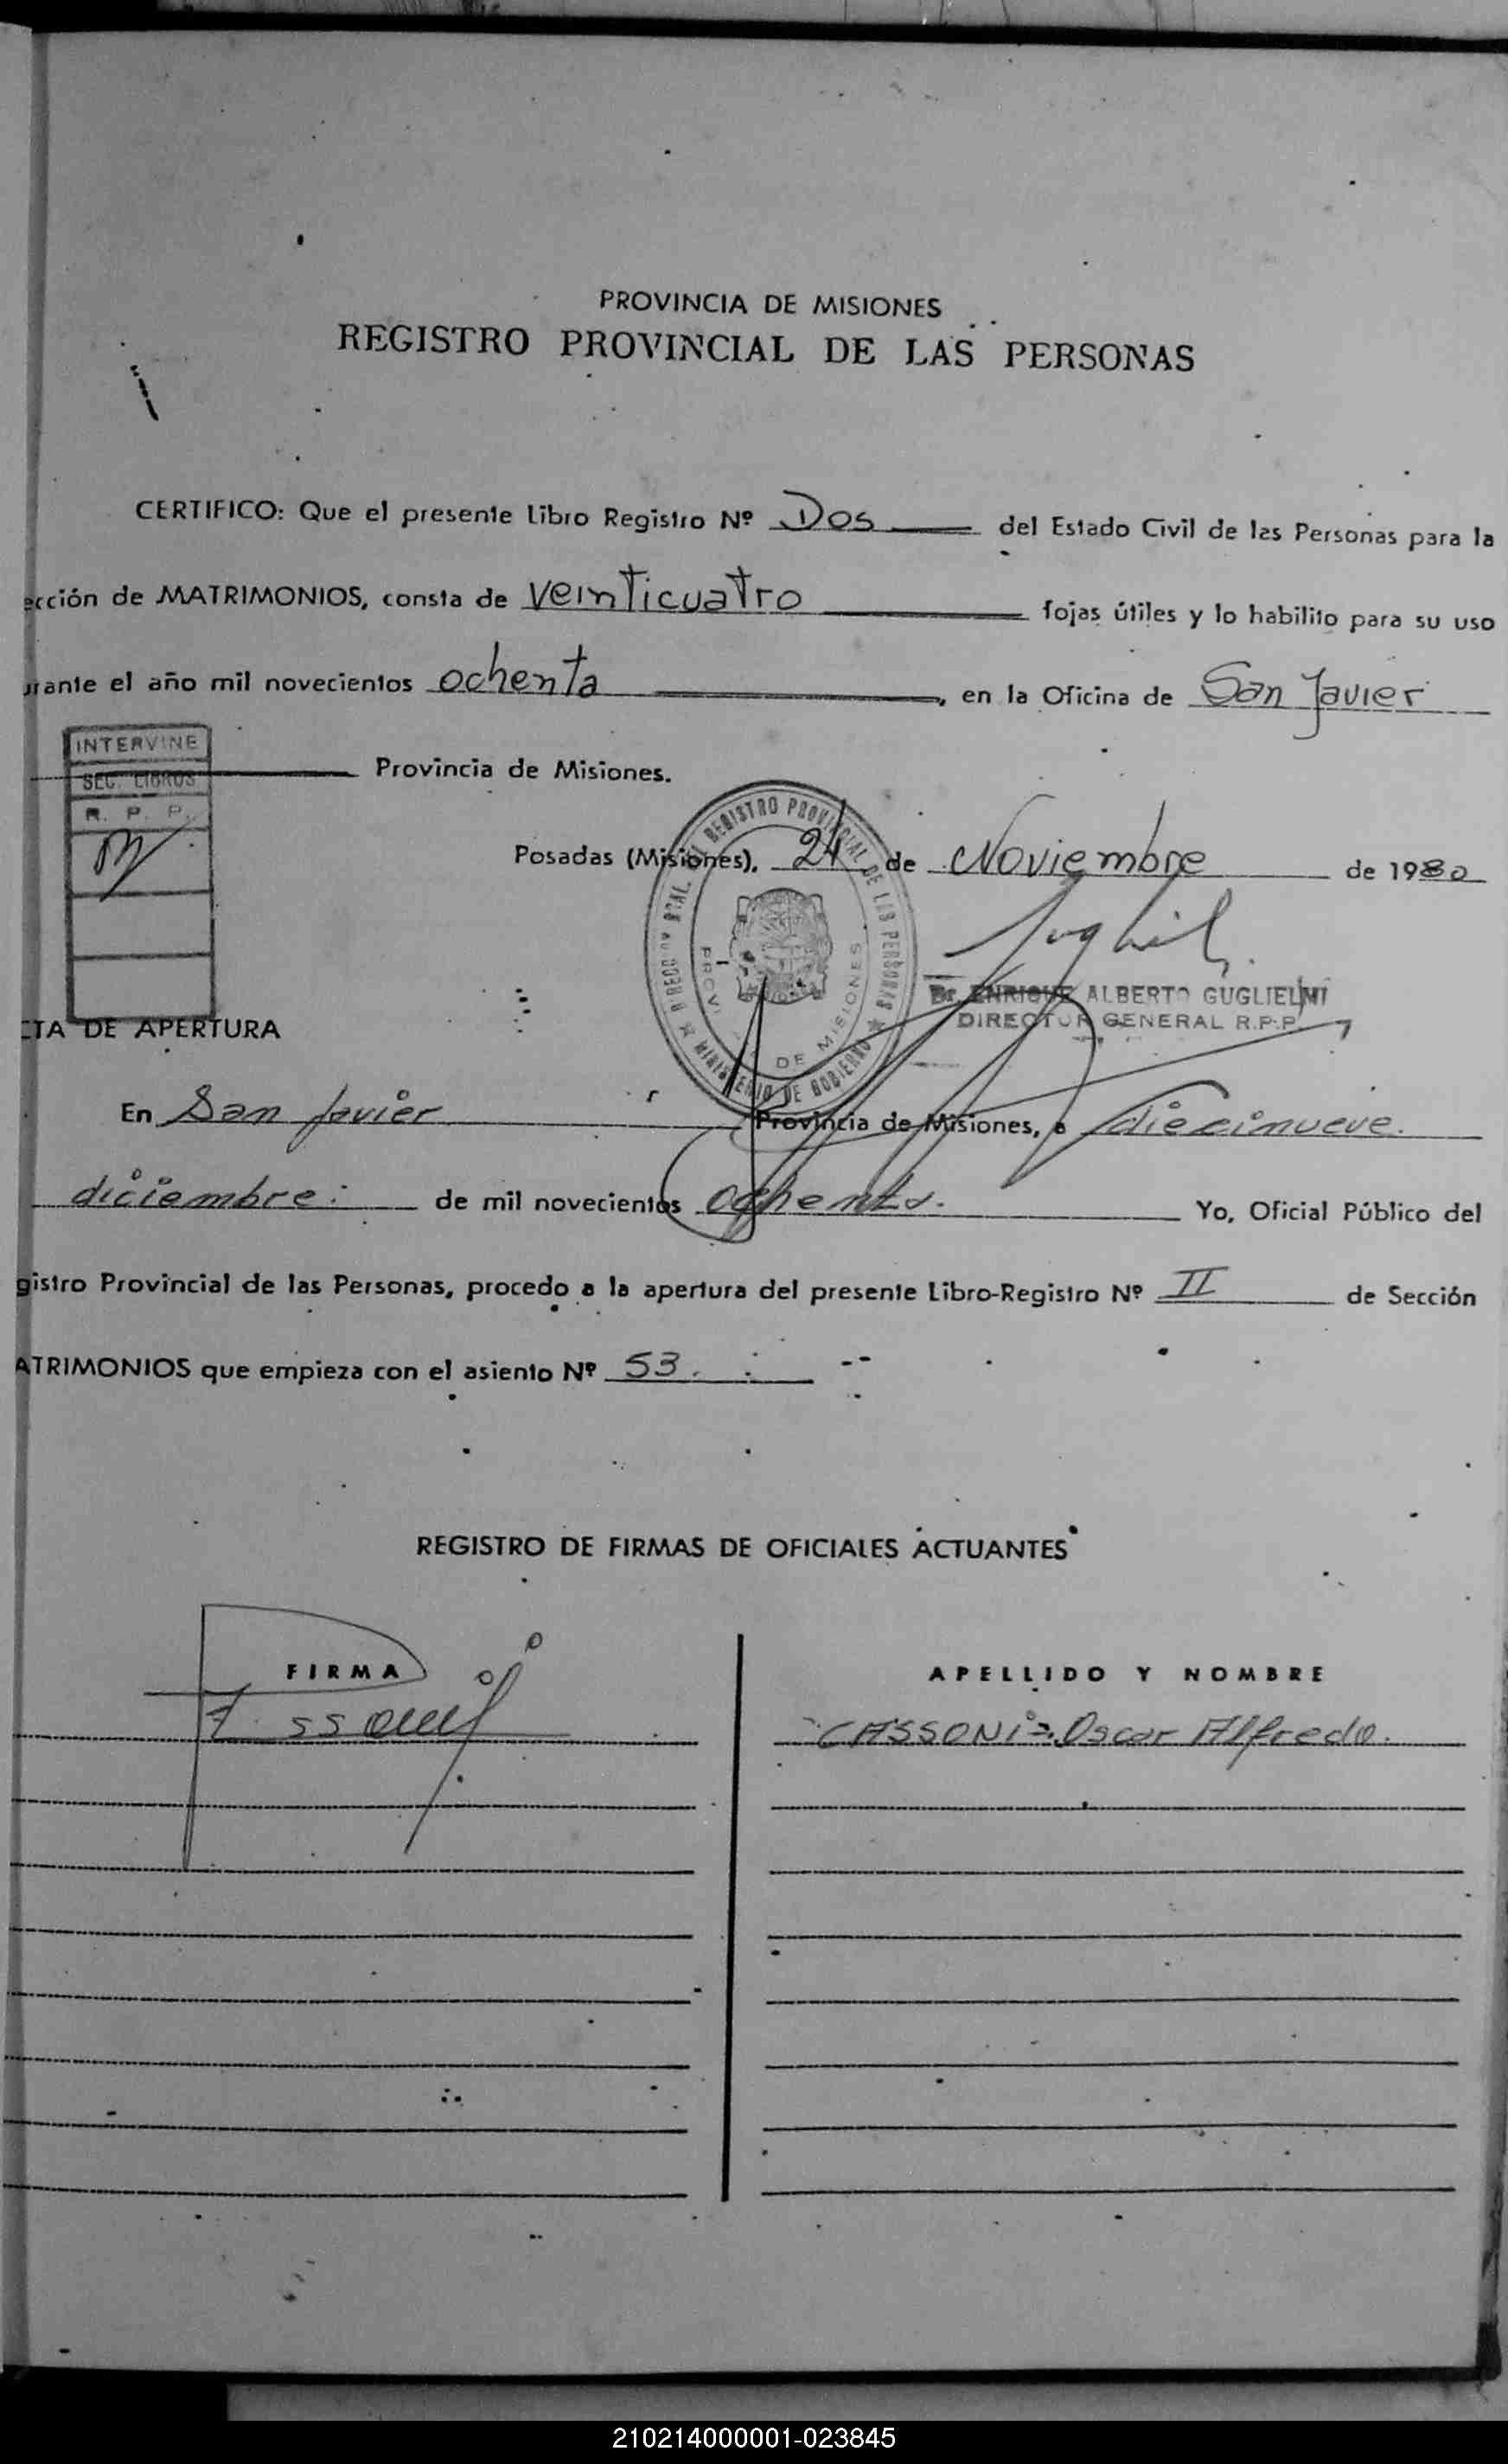 PROVINCIA DE MISIONES
REGISTRO PROVINCIAL DE LAS PERSONAS
CERTIFICO: Que el presente Libro Registro Nº Dos del Estado Civil de las Personas para la
ección de MATRIMONIOS, consta de veinticuatro fojas útiles y lo habilito para su uso
urante el año mil novecientos ochenta, en la Oficina de San Javier
INTERVINE
SEC. LIBROS
R. P. P.
Provincia de Misiones.
REGISTRO PROVINCIAL DE LAS PERSONAS
MINISTERIO DE GOBIERNO
DE MISIONES
Posadas (Misiones), 24 de Noviembre de 1980
Dr. ENRIQUE ALBERTO GUGLIELMI
DIRECTOR GENERAL R.P.P.
CTA DE APERTURA
En San Javier Provincia de Misiones, a diecinueve.
diciembre. de mil novecientos ochenta. Yo, Oficial Público del
gistro Provincial de las Personas, procedo a la apertura del presente Libro-Registro Nº II de Sección
ATRIMONIOS que empieza con el asiento Nº 53.
REGISTRO DE FIRMAS DE OFICIALES ACTUANTES
FIRMA APELLIDO Y NOMBRE
CASSONI= Oscar Alfredo.
210214000001-023845